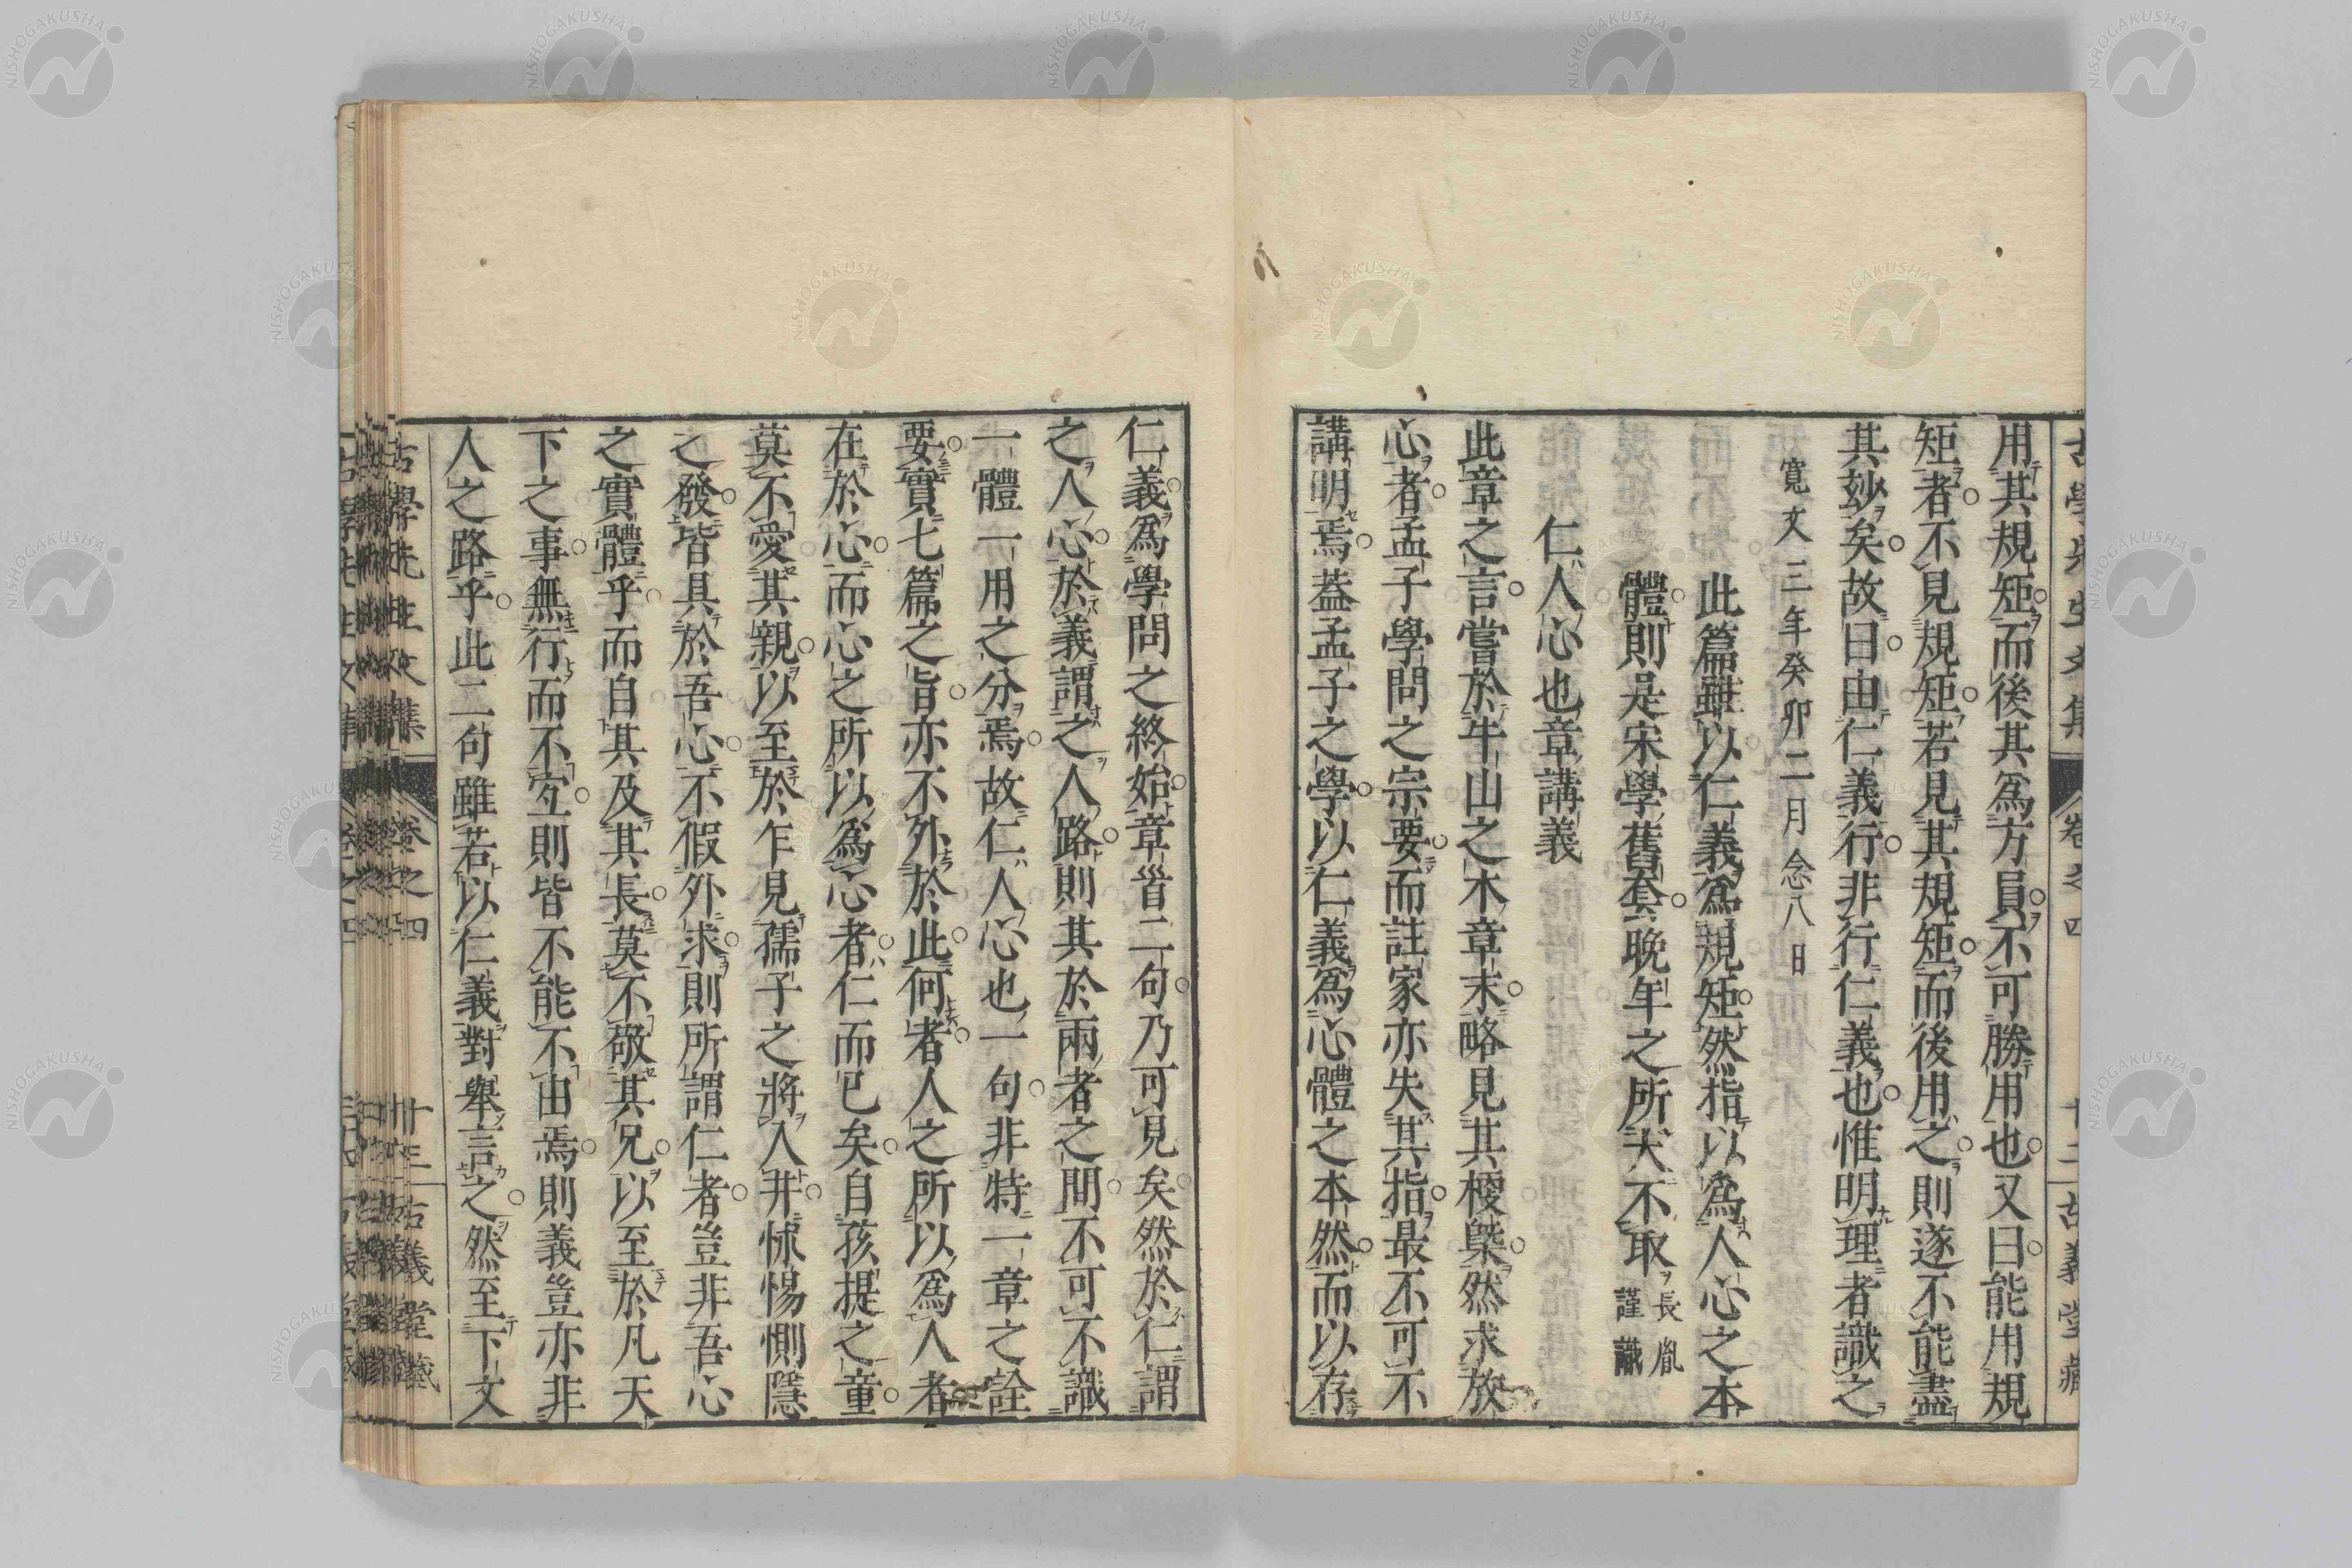 用其規矩而後其爲方員不可勝用也又曰能用規
矩者不見規矩若見其規矩而後用之則遂不能盡
其玅矣故曰由仁義行非行仁義也惟明理者識之
寬文三年癸卯二月念八日
此篇雖以仁義爲規矩然指以爲人心之本
體則是宋學舊套晩年之所不取長胤謹識
仁人心也章講義
此章之言嘗於牛山之木章末略見其梗槩然求放
心者孟子學問之宗要而註家亦失其指最不可不
講明焉葢孟子之學以仁義爲心體之本然而以存
仁義爲學問之終始章首二句乃可見矣然於仁謂
之人心於義謂之人路則其於兩者之間不可不識
一體一用之分焉故仁人心也一句非特一章之詮
要實七篇之旨亦不外於此何者人之所以爲人者
在於心而心之所以爲心者仁而已矣自孩提之童
莫不愛其親以至於乍見孺子之將入井怵惕惻隱
之發皆具於吾心不假外求則所謂仁者豈非吾心
之實體乎而自其及其長莫不敬其兄以至於凡天
下之事無行而不宐則皆不能不由焉則義豈亦非
人之路乎此二句雖若以仁義對舉言之然至下文
古學先生文集 卷之四 卅三 古義堂藏